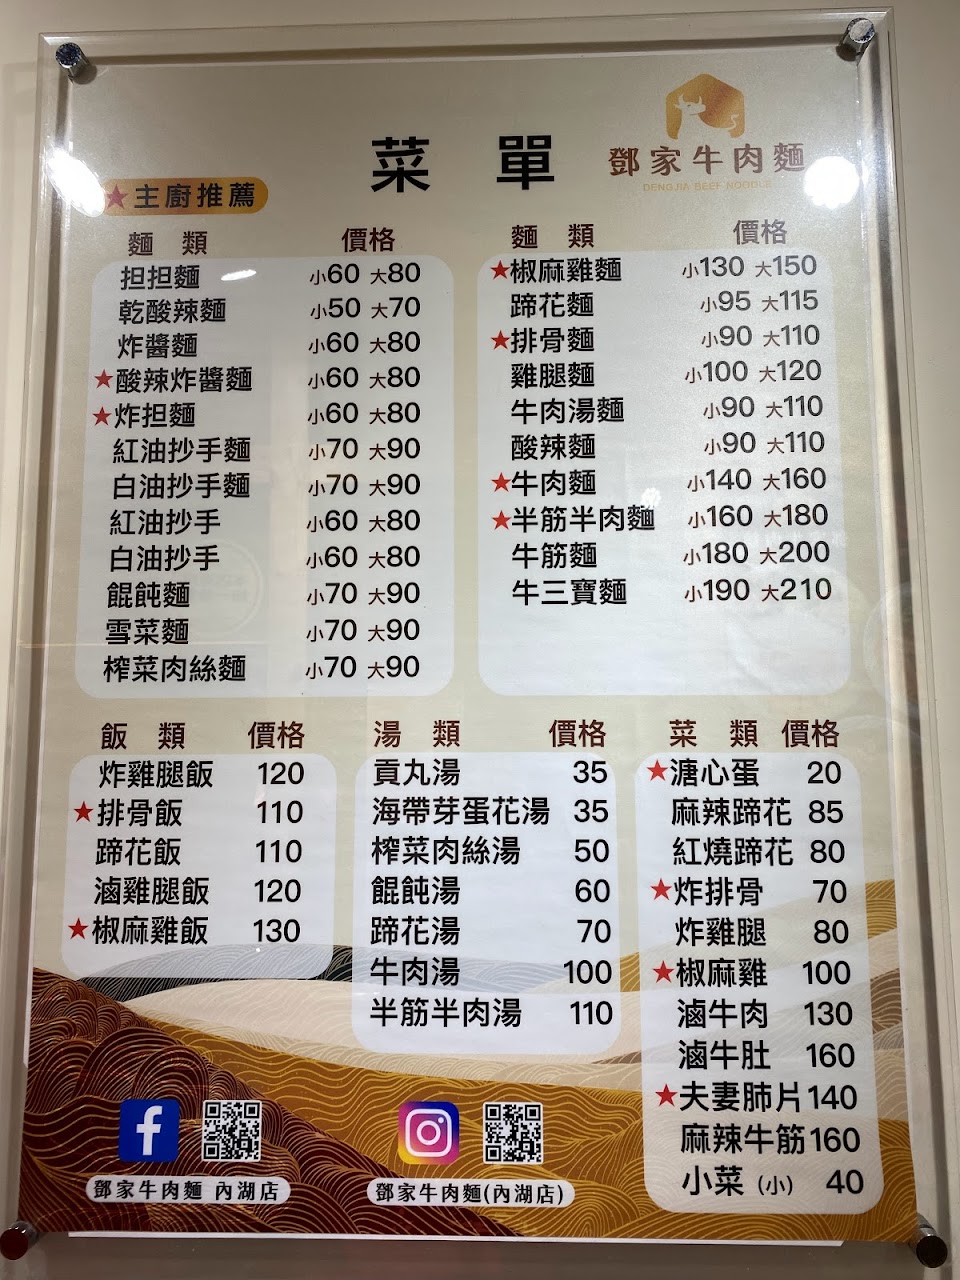 菜 單
鄧家牛肉麵
DENGJIA BEEF NOODLE
★主廚推薦
麵 類 價格
担担麵 小60 大80
乾酸辣麵 小50 大70
炸醬麵 小60 大80
★酸辣炸醬麵 小60 大80
★炸担麵 小60 大80
紅油抄手麵 小70 大90
白油抄手麵 小70 大90
紅油抄手 小60 大80
白油抄手 小60 大80
餛飩麵 小70 大90
雪菜麵 小70 大90
榨菜肉絲麵 小70 大90
麵 類 價格
★椒麻雞麵 小130 大150
蹄花麵 小95 大115
★排骨麵 小90 大110
雞腿麵 小100 大120
牛肉湯麵 小90 大110
酸辣麵 小90 大110
★牛肉麵 小140 大160
★半筋半肉麵 小160 大180
牛筋麵 小180 大200
牛三寶麵 小190 大210
飯 類 價格
炸雞腿飯 120
★排骨飯 110
蹄花飯 110
滷雞腿飯 120
★椒麻雞飯 130
湯 類 價格
貢丸湯 35
海帶芽蛋花湯 35
榨菜肉絲湯 50
餛飩湯 60
蹄花湯 70
牛肉湯 100
半筋半肉湯 110
菜 類 價格
★溏心蛋 20
麻辣蹄花 85
紅燒蹄花 80
★炸排骨 70
炸雞腿 80
★椒麻雞 100
滷牛肉 130
滷牛肚 160
★夫妻肺片 140
麻辣牛筋 160
小菜 (小) 40
鄧家牛肉麵 內湖店
鄧家牛肉麵(內湖店)